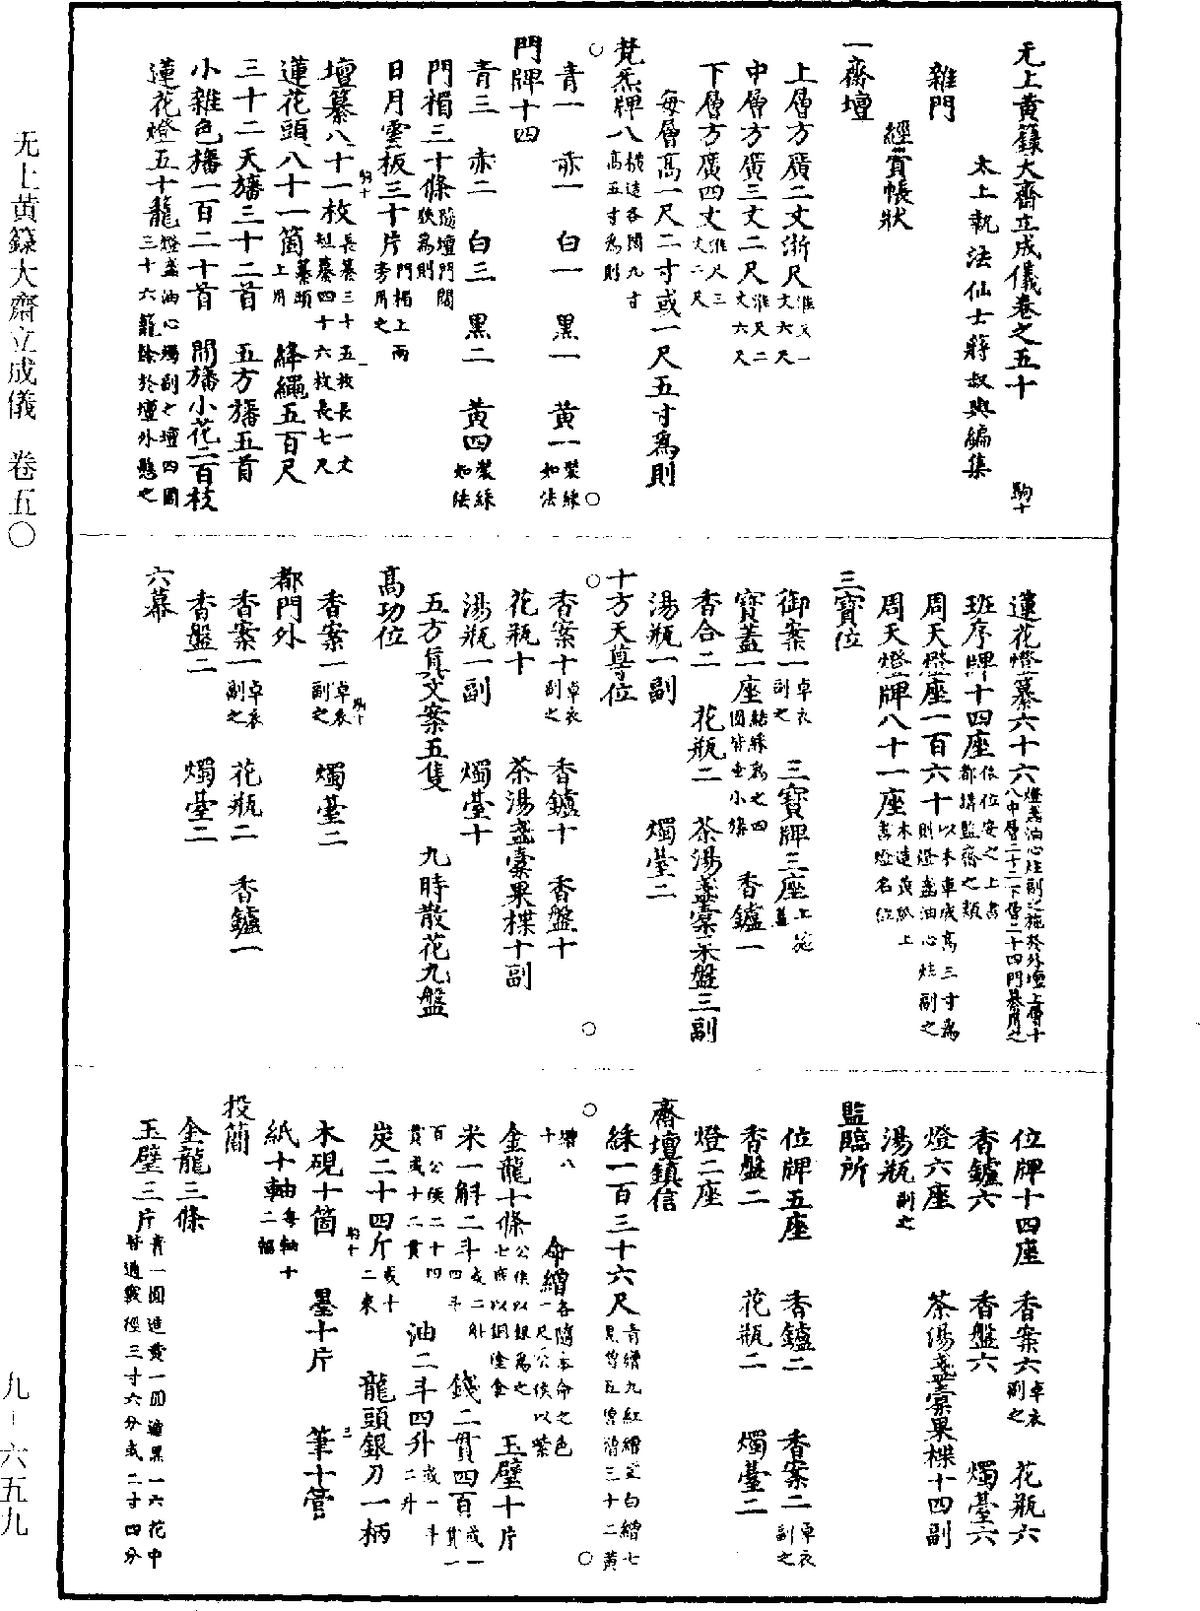 无上黃籙大齋立成儀卷之五十 駒十
太上執法仙士蔣叔輿編集
雜門
經賨帳狀
一齋壇
上層方廣二丈浙尺淮丈一丈六尺
中層方廣三丈二尺淮尺二丈六尺
下層方廣四丈淮尺三丈二尺
每層高一尺二寸或一尺五寸爲則
梵炁牌八橫造各闊九寸高五寸爲則
青一 赤一 白一 黑一 黃一裝綵如法
門牌十四
青三 赤二 白三 黑二 黃四裝綵如法
門楣三十條隨壇門闊狹爲則
日月雲板三十片門楣上兩旁用之
壇纂八十一枚長纂三十五枚長一丈短纂四十六枚長七尺
蓮花頭八十一箇纂頭上用 絳繩五百尺
三十二天旛三十二首 五方旛五首
小雜色旛一百二十首 間旛小花二百枝
蓮花燈五十籠燈盞油心燭副之壇四圍三十六籠餘於壇外懸之
蓮花燈纂六十六燈盞油心炷副之施於外壇上層十八中層二十二下層二十四門纂用之
班序牌十四座依位安之上書都講監齋之類
周天燈座一百六十以木車成高三寸爲則燈盞油心炷副之
周天燈牌八十一座木造黃紙上書燈名位
三寶位
御案一卓衣副之 三寶牌三座上施蓋
寶蓋一座結綵爲之四圍皆垂小旛 香鑪一
香合二 花瓶二 茶湯盞橐果盤三副
湯瓶一副 燭臺二
十方天尊位
香案十卓衣副之 香鑪十 香盤十
花瓶十 茶湯盞橐果楪十副
湯瓶一副 燭臺十
五方真文案五隻 九時散花九盤
高功位
香案一卓衣副之 燭臺二
都門外
香案一卓衣副之 花瓶二 香鑪一
香盤二 燭臺二
六幕
位牌十四座 香案六卓衣副之 花瓶六
香鑪六 香盤六 燭臺六
燈六座 茶湯盞橐果楪十四副
湯瓶副之
監臨所
位牌五座 香鑪二 香案二卓衣副之
香盤二 花瓶二 燭臺二
燈二座
齋壇鎮信
綵一百三十六尺青繒九紅繒三白繒七黑繒五黃繒三十二黃
繒八十 命繒各隨本命之色一尺公侯以紫
金龍十條公侯以銀爲之七庶以銅塗金 玉璧十片
米一斛二斗或二斛四斗 錢二貫四百或一貫一
百公侯二十四貫或十二貫 油二斗四升或一斗二升
炭二十四斤或十二束 龍頭銀刀一柄
木硯十箇 墨十片 筆十管
紙十軸每軸十二幅
投簡
金龍三條
玉璧三片青一圓造黃一圓造黑一六花中皆通竅徑三寸六分或二寸四分
无上黃籙大齋立成儀 卷五〇
九-六五九